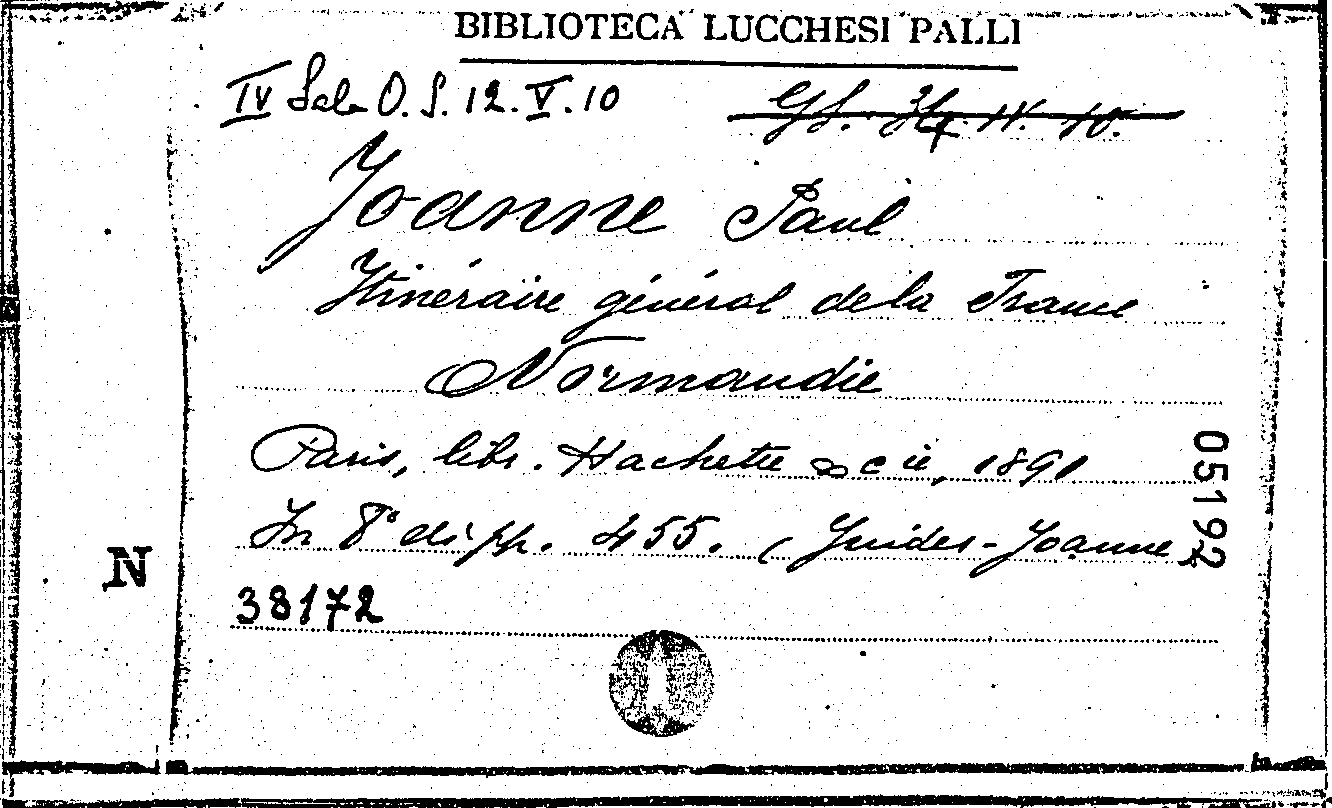 BIBLIOTECA LUCCHESI PALLI
IV Sala O. S. 12. V. 10
Joanne Paul
Itinéraire général de la France
Normandie
Paris, libr. Hachette & cie, 1891
In 8° di pp. 455. (Guides-Joanne)
38172
05192
N